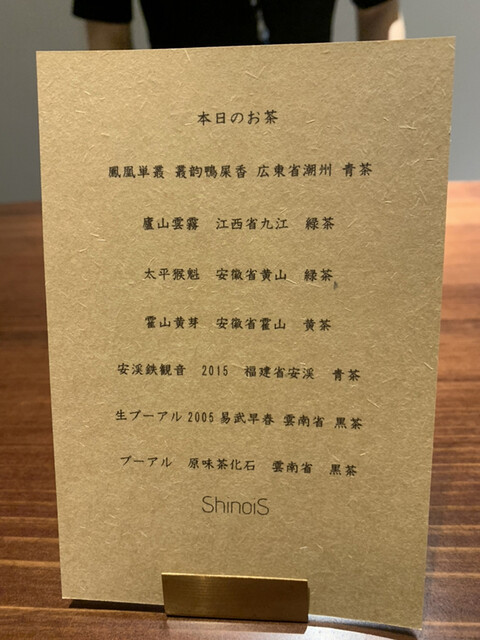 本日のお茶
鳳凰単叢 叢韵鴨屎香 広東省潮州 青茶
廬山雲霧 江西省九江 緑茶
太平猴魁 安徽省黄山 緑茶
霍山黄芽 安徽省霍山 黄茶
安渓鉄観音 2015 福建省安渓 青茶
生プーアル2005易武早春 雲南省 黒茶
プーアル 原味茶化石 雲南省 黒茶
ShinoiS